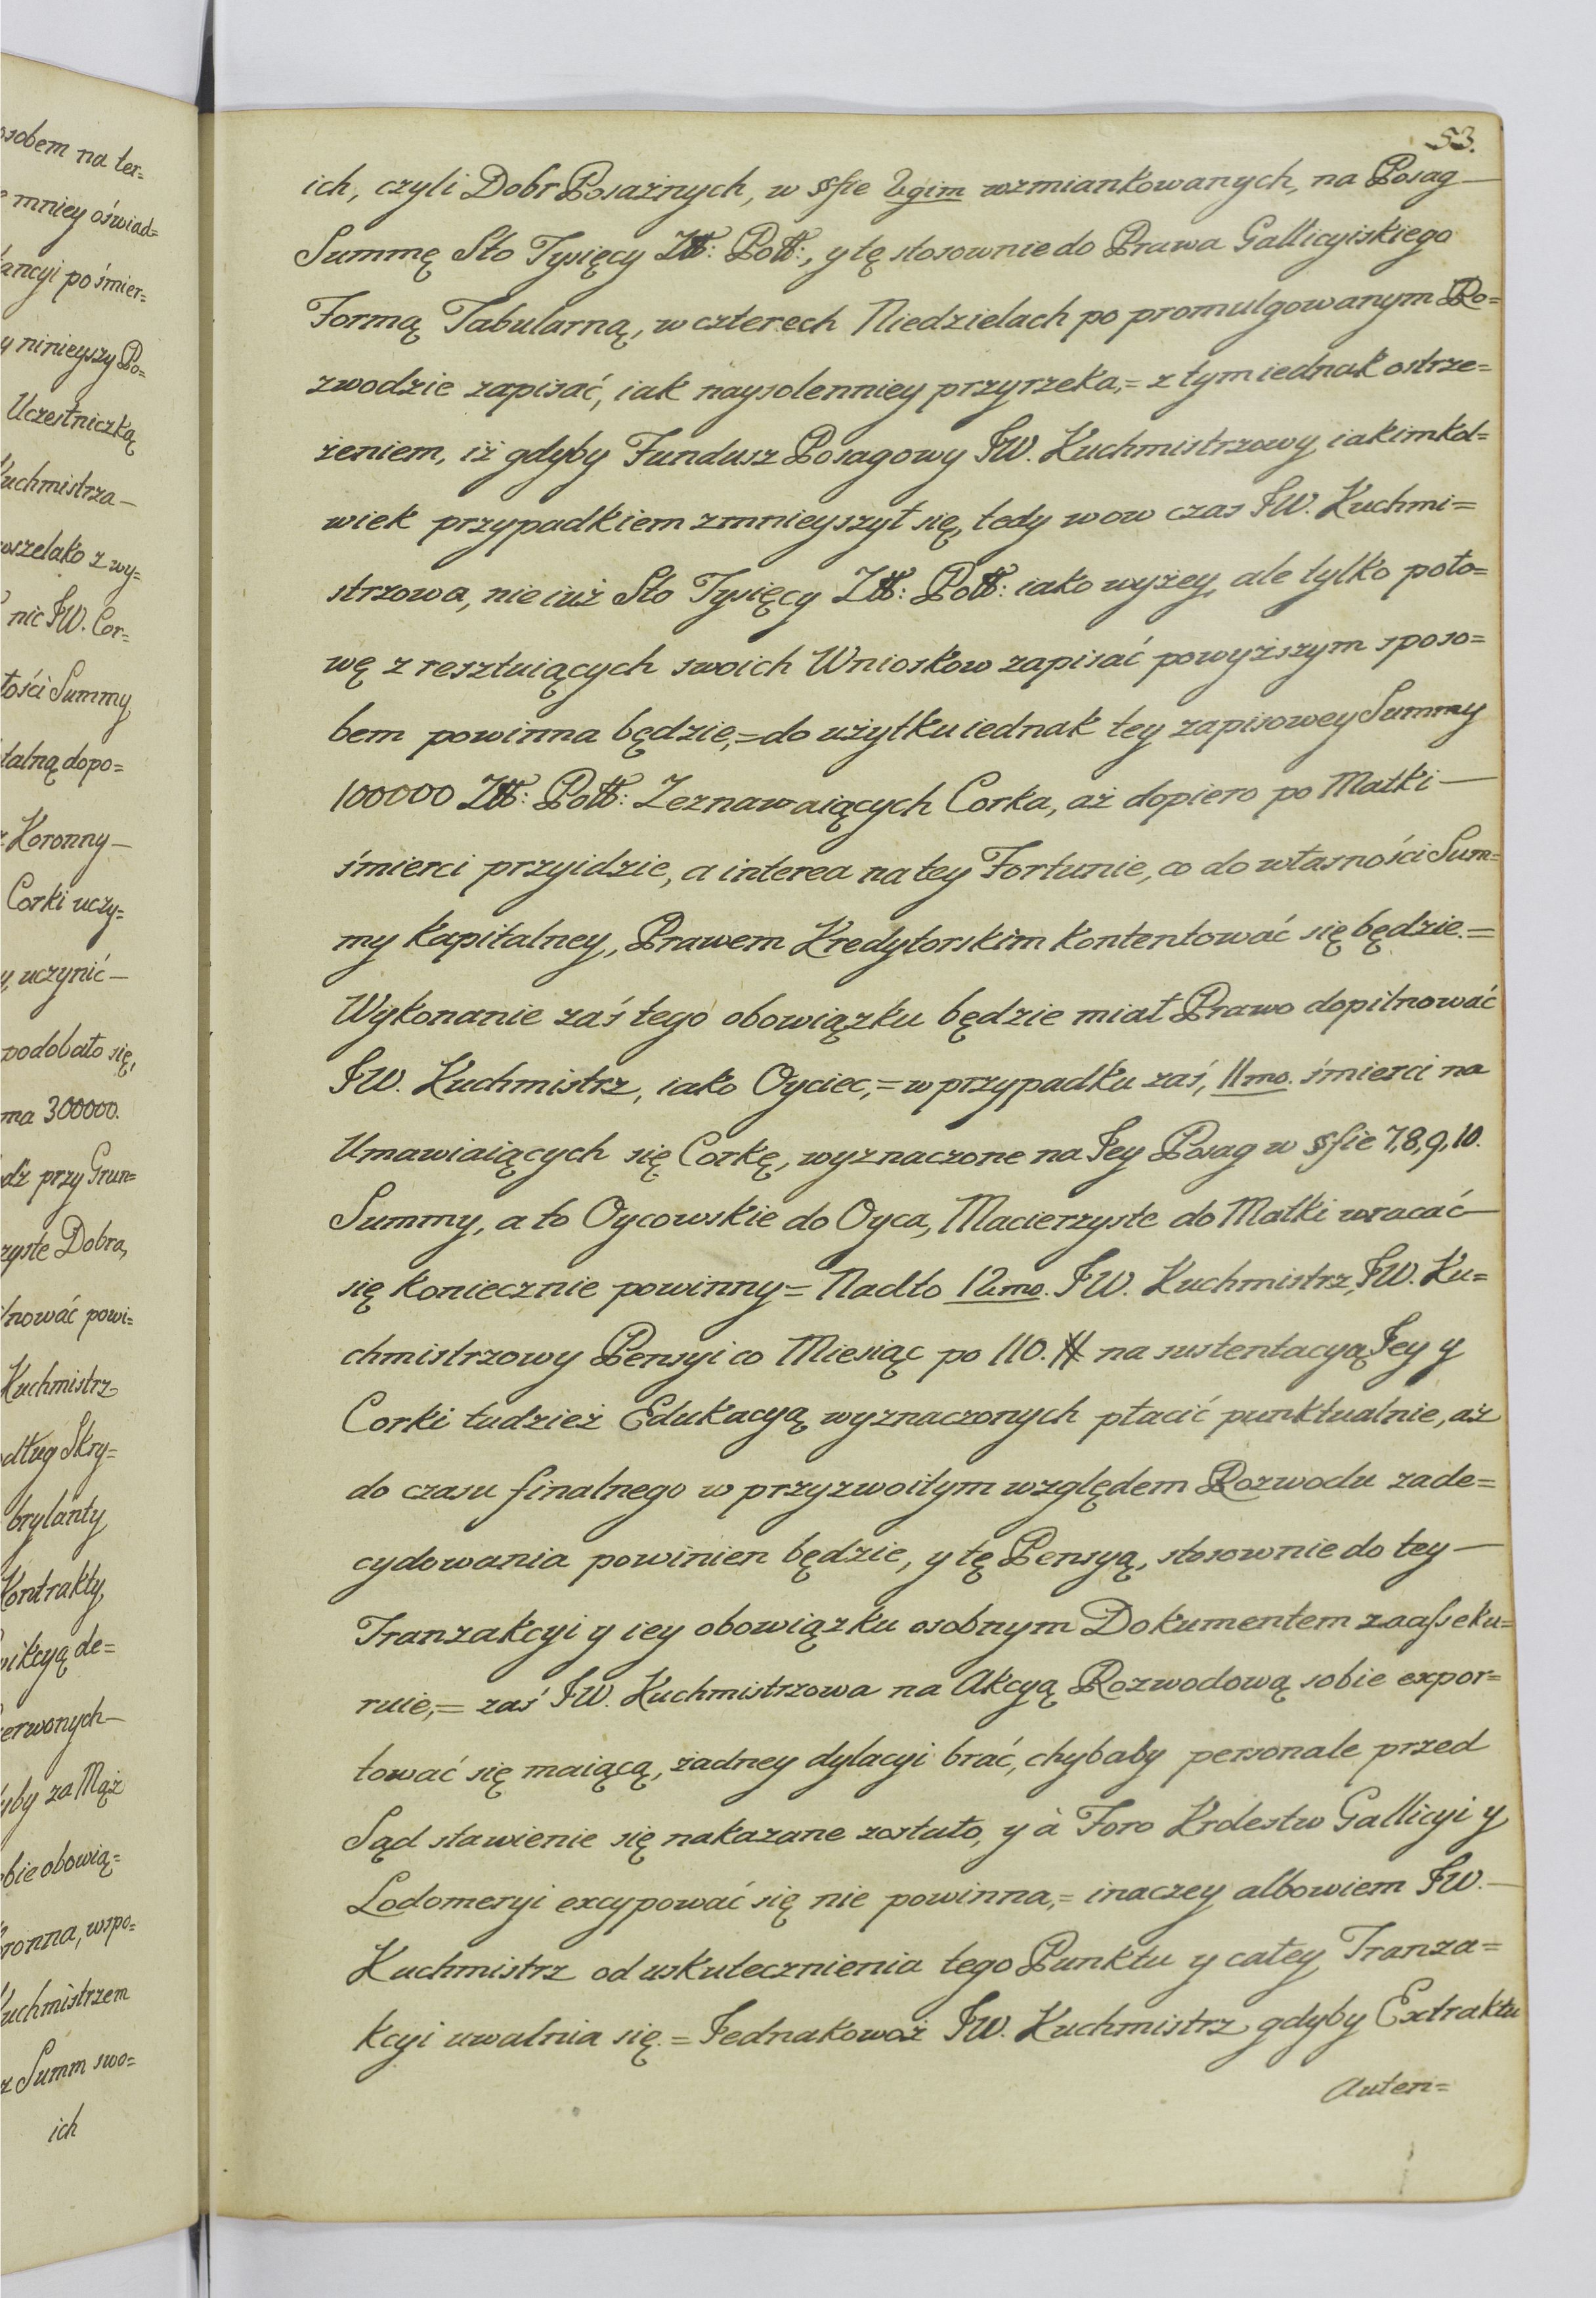 osobem na ter=
e mniey oświad=
tancyi po śmier=
y ninieyszy Po=
Uczestniczką
Kuchmistrza —
wszelako z wy=
nic JW. Cor=
tości Summy
talną dopo=
Koronny —
Corki uczy=
y, uczynić —
podobało się,
ma 300000.
dź przy Grun=
zyste Dobra,
lnować powi=
Kuchmistrz
odług Skry=
brylanty
Kontrakty
wikcyą de=
zerwonych —
yby za Mąż
obie obowią=
oronna, wspo=
Kuchmistrzem
z Summ swo=
ich
53.
ich, czyli Dobr Posażnych, w §fie 2gim wzmiankowanych, na Posag —
Summę Sto Tysięcy Złł: Poll:, y tę stosownie do Prawa Gallicyiskiego
Formą Tabularną, w czterech Niedzielach po promulgowanym Ro=
zwodzie zapisać, iak naysolenniey przyrzeka,= z tym iednak ostrze=
żeniem, iż gdyby Fundusz Posagowy JW. Kuchmistrzowy iakimkol=
wiek przypadkiem zmnieyszył się, tedy wow czas JW. Kuchmi=
strzowa, nie iuż Sto Tysięcy Złł: Poll: iako wyżey, ale tylko poło=
wę z resztuiących swoich Wnioskow zapisać powyższym sposo=
bem powinna będzie,= do użytku iednak tey zapisowey Summy
100000 Złł: Poll: Zeznawaiących Corka, aż dopiero po Matki —
śmierci przyidzie, a interea na tey Fortunie, co do własności Sum=
my kapitalney, Prawem Kredytorskim kontentować się będzie.=
Wykonanie zaś tego obowiązku będzie miał Prawo dopilnować
JW. Kuchmistrz, iako Oyciec,= w przypadku zaś, 11mo. śmierci na
Umawiaiących się Corkę, wyznaczone na Jey Posag w §fie 7,8,9,10.
Summy, a to Oycowskie do Oyca, Macierzyste do Matki wracać —
się koniecznie powinny = Nadto 12mo. JW. Kuchmistrz, JW. Ku=
chmistrzowy Pensyi co Miesiąc po 110. # na sustentacyą Jey y
Corki tudzież Edukacyą wyznaczonych płacić punktualnie, aż
do czasu finalnego w przyzwoitym względem Rozwodu zade=
cydowania powinien będzie, y tę Pensyą, stosownie do tey —
Tranzakcyi y iey obowiązku osobnym Dokumentem zaasseku=
ruie,= zaś JW. Kuchmistrzowa na Akcyą Rozwodową sobie expor=
tować się maiącą, żadney dylacyi brać, chybaby personale przed
Sąd stawienie się nakazane zostało, y à Foro Krolestw Gallicyi y
Lodomeryi excypować się nie powinna,= inaczey albowiem JW. —
Kuchmistrz od uskutecznienia tego Punktu y całey Tranza=
kcyi uwalnia się.= Jednakowoż JW. Kuchmistrz gdyby Extraktu
Auten=